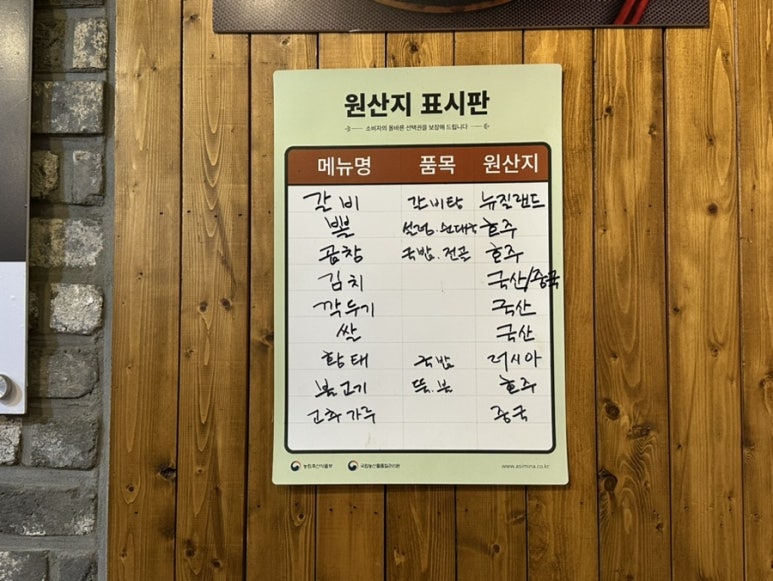 원산지 표시판
소비자의 올바른 선택권을 보장해 드립니다
메뉴명 품목 원산지
갈비 갈비탕 뉴질랜드
뼐 설렁.순대국 호주
곱창 국밥.전골 호주
김치 국산/중국
깍두기 국산
쌀 국산
황태 국밥 러시아
불고기 뚝.불 호주
고추가루 중국
농림축산식품부 국립농산물품질관리원 www.asimina.co.kr